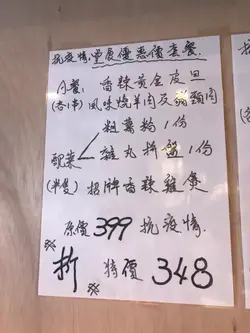 抗疫情,重展優惠價套餐.
A餐: 香辣黃金皮旦
(各1串) 風味燒羊肉及豬頸肉
粗薯粉1份
配菜 雜丸拼盤1份
(半隻) 招牌香軟雞煲
原價399抗疫情.
折 特價348